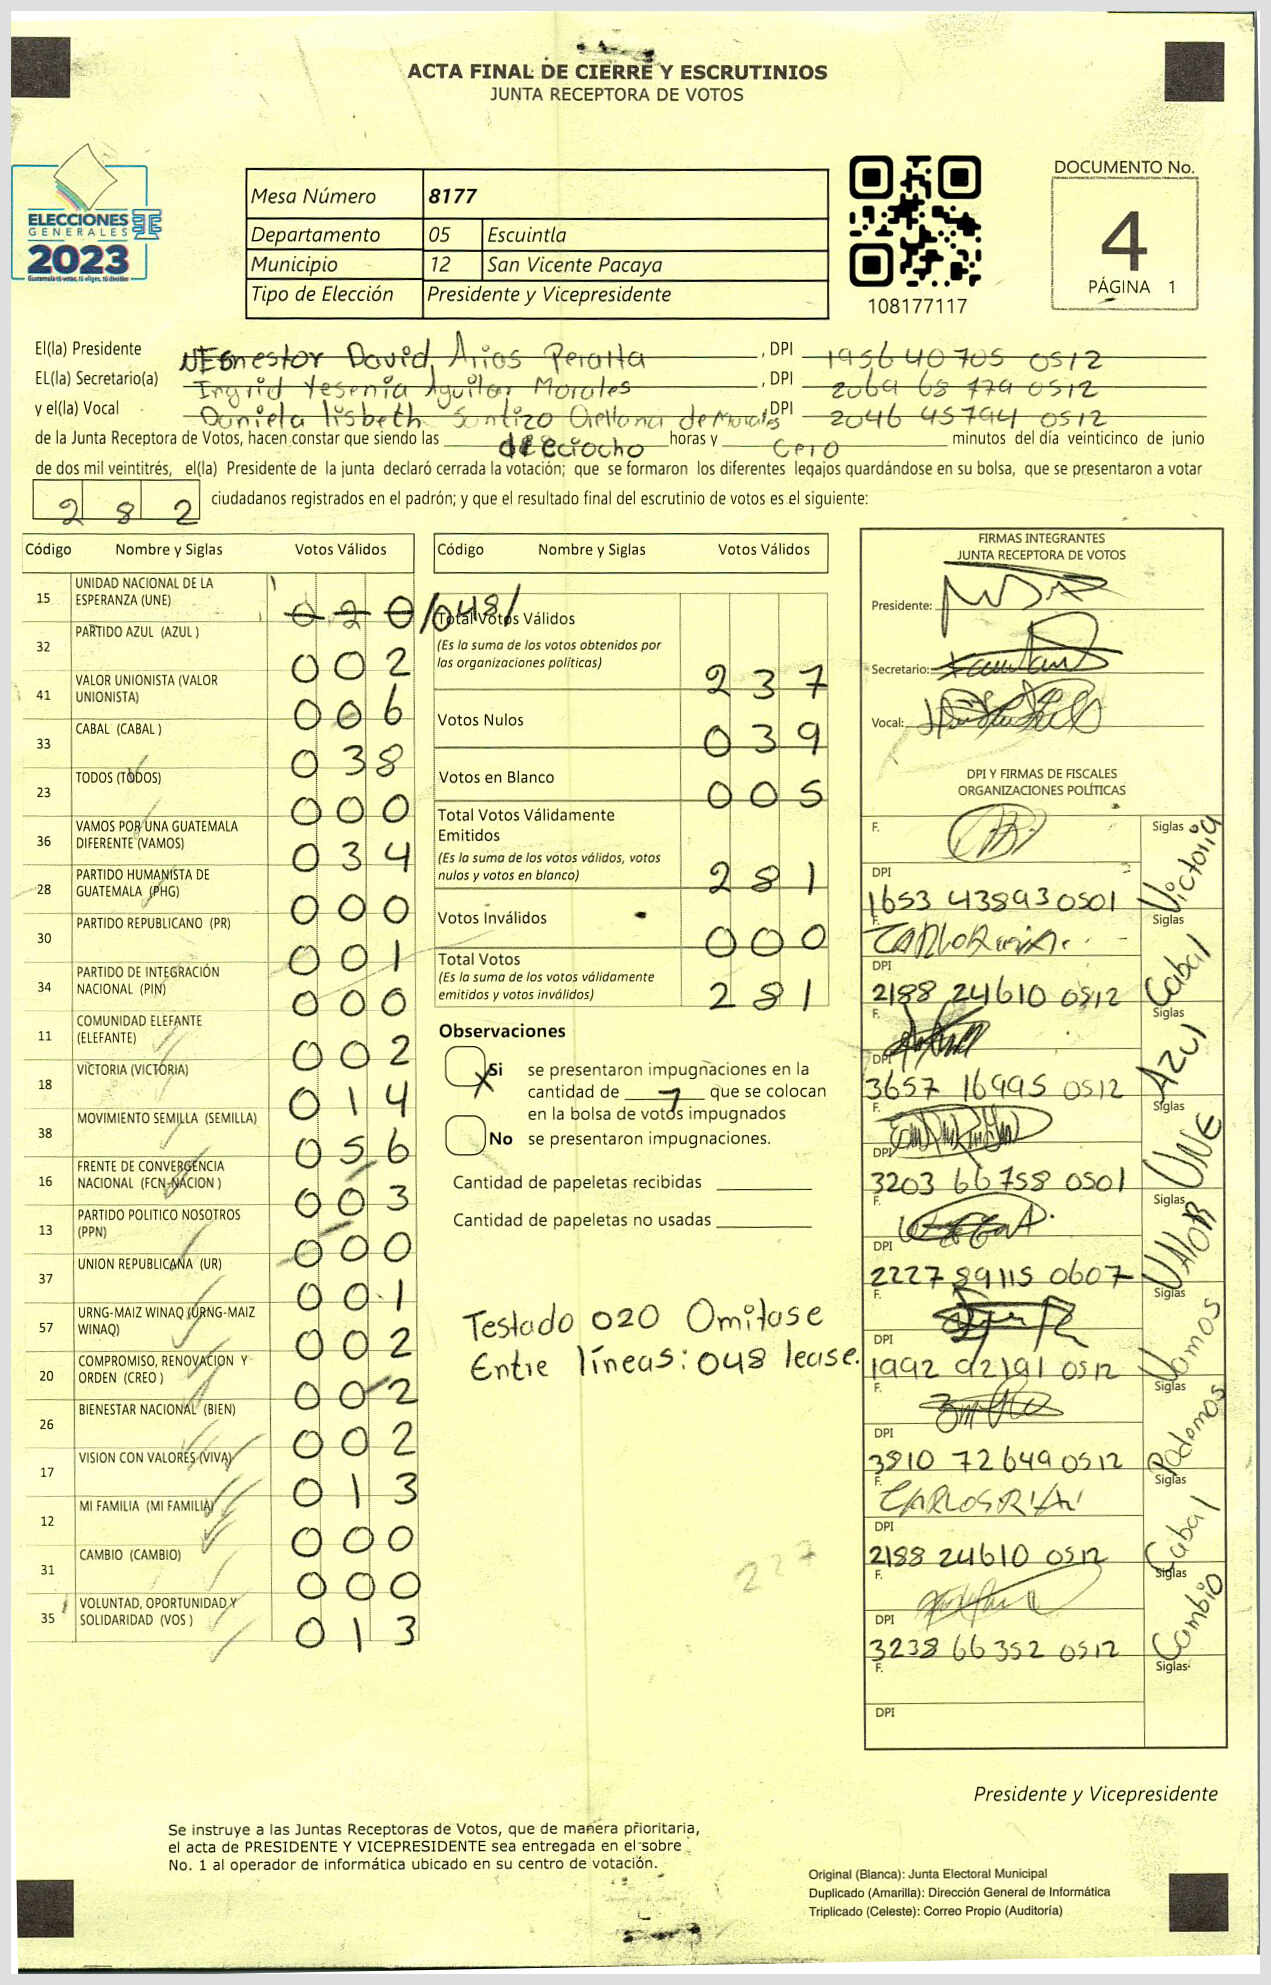 ACTA FINAL DE CIERRE Y ESCRUTINIOS
JUNTA RECEPTORA DE VOTOS
ELECCIONES
GENERALES
2023
Guatemala tú votas, tú eliges, tú decides
Mesa Número 8177
Departamento 05 Escuintla
Municipio 12 San Vicente Pacaya
Tipo de Elección Presidente y Vicepresidente
108177117
DOCUMENTO No.
4
PÁGINA 1
El(la) Presidente Nestor David Arias Peralta , DPI 1956 40705 0512
EL(la) Secretario(a) Ingrid Yesenia Aguilar Morales , DPI 2069 68 779 0512
y el(la) Vocal Daniela lisbeth Santizo Orellana de Morales DPI 2046 45794 0512
de la Junta Receptora de Votos, hacen constar que siendo las dieciocho horas y cero minutos del día veinticinco de junio
de dos mil veintitrés, el(la) Presidente de la junta declaró cerrada la votación; que se formaron los diferentes legajos quardándose en su bolsa, que se presentaron a votar
282 ciudadanos registrados en el padrón; y que el resultado final del escrutinio de votos es el siguiente:
Código Nombre y Siglas Votos Válidos
15 UNIDAD NACIONAL DE LA ESPERANZA (UNE) 020 /048/
32 PARTIDO AZUL (AZUL ) 002
41 VALOR UNIONISTA (VALOR UNIONISTA) 006
33 CABAL (CABAL ) 038
23 TODOS (TODOS) 000
36 VAMOS POR UNA GUATEMALA DIFERENTE (VAMOS) 034
28 PARTIDO HUMANISTA DE GUATEMALA (PHG) 000
30 PARTIDO REPUBLICANO (PR) 001
34 PARTIDO DE INTEGRACIÓN NACIONAL (PIN) 000
11 COMUNIDAD ELEFANTE (ELEFANTE) 002
18 VICTORIA (VICTORIA) 014
38 MOVIMIENTO SEMILLA (SEMILLA) 056
16 FRENTE DE CONVERGENCIA NACIONAL (FCN-NACION ) 003
13 PARTIDO POLITICO NOSOTROS (PPN) 000
37 UNION REPUBLICANA (UR) 001
57 URNG-MAIZ WINAQ (URNG-MAIZ WINAQ) 002
20 COMPROMISO, RENOVACION Y ORDEN (CREO ) 002
26 BIENESTAR NACIONAL (BIEN) 002
17 VISION CON VALORES (VIVA) 013
12 MI FAMILIA (MI FAMILIA) 000
31 CAMBIO (CAMBIO) 000
35 VOLUNTAD, OPORTUNIDAD Y SOLIDARIDAD (VOS ) 013
Código Nombre y Siglas Votos Válidos
Total Votos Válidos
(Es la suma de los votos obtenidos por
las organizaciones políticas) 237
Votos Nulos 039
Votos en Blanco 005
Total Votos Válidamente
Emitidos
(Es la suma de los votos válidos, votos
nulos y votos en blanco) 281
Votos Inválidos 000
Total Votos
(Es la suma de los votos válidamente
emitidos y votos inválidos) 281
Observaciones
X Si se presentaron impugnaciones en la
cantidad de 7 que se colocan
en la bolsa de votos impugnados
No se presentaron impugnaciones.
Cantidad de papeletas recibidas
Cantidad de papeletas no usadas
Testado 020 Omitase
Entre líneas: 048 lease.
227
FIRMAS INTEGRANTES
JUNTA RECEPTORA DE VOTOS
Presidente:
Secretario:
Vocal:
DPI Y FIRMAS DE FISCALES
ORGANIZACIONES POLÍTICAS
F. Siglas Victoria
DPI 1653 43893 0501
F. Siglas Cabal
DPI 2188 24610 0512
F. Siglas Azul
DPI 3657 16995 0512
F. Siglas UNE
DPI 3203 66758 0501
F. Siglas VALOR
DPI 2227 89115 0607
F. Siglas Vamos
DPI 1992 92191 0512
F. Siglas Podemos
DPI 3910 72649 0512
F. CARLOS Siglas Cabal
DPI 2188 24610 0512
F. Siglas Cambio
DPI 3238 66352 0512
F. Siglas
DPI
Presidente y Vicepresidente
Se instruye a las Juntas Receptoras de Votos, que de manera prioritaria,
el acta de PRESIDENTE Y VICEPRESIDENTE sea entregada en el sobre
No. 1 al operador de informática ubicado en su centro de votación.
Original (Blanca): Junta Electoral Municipal
Duplicado (Amarilla): Dirección General de Informática
Triplicado (Celeste): Correo Propio (Auditoría)